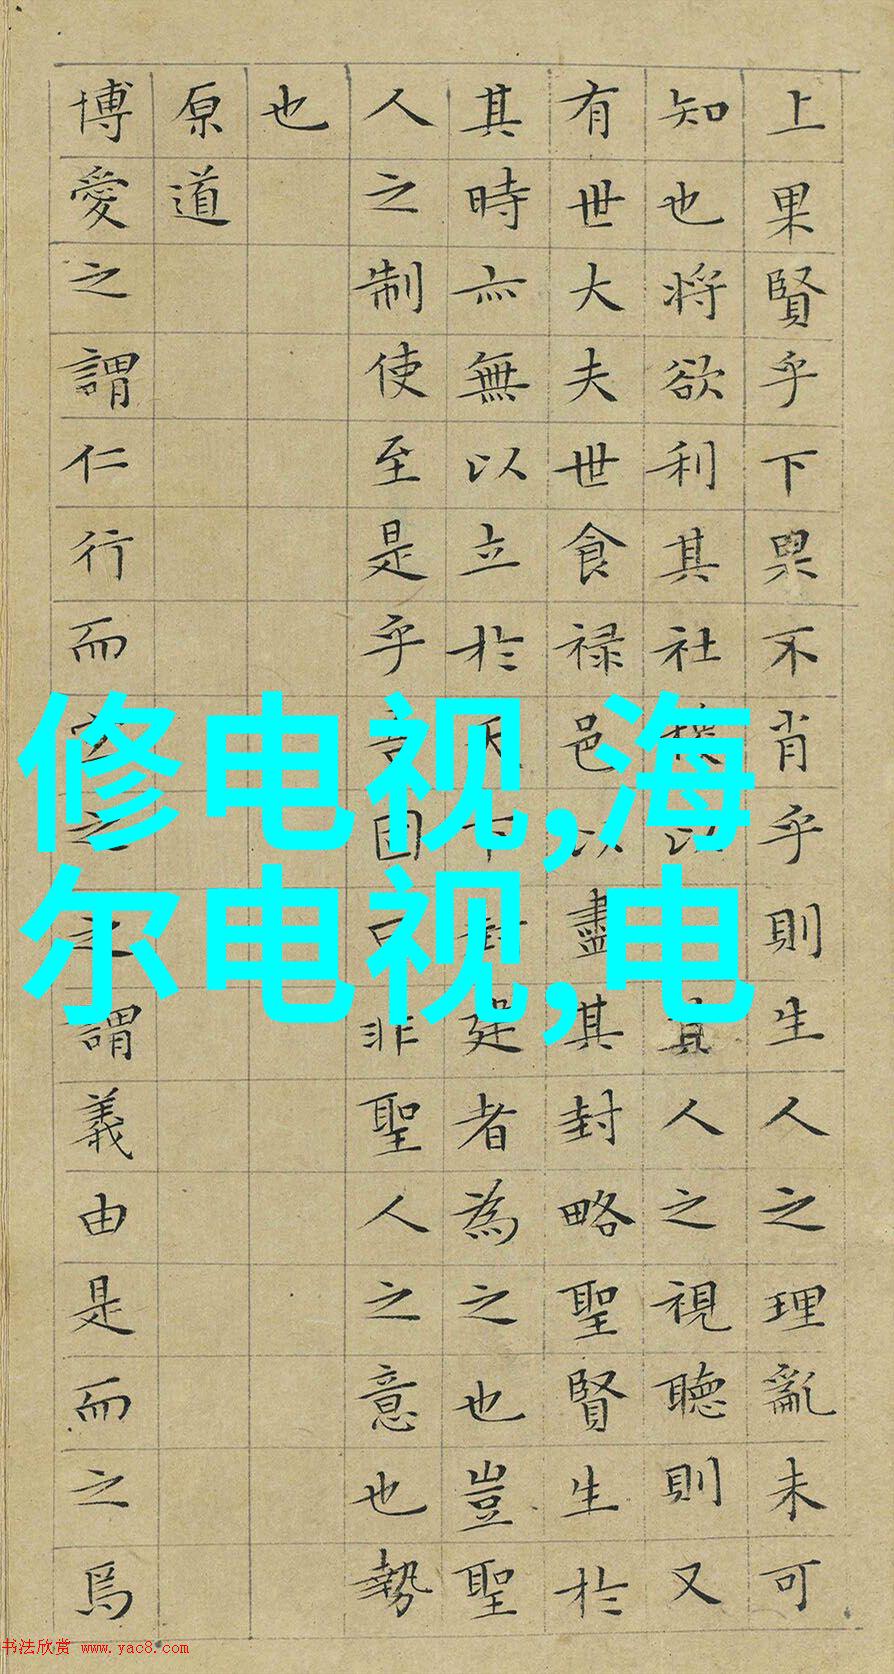 上果賢乎下果不肖乎則生人之理亂未可
知也将欲利其社稷以其人之視聽則又
有世大夫世食禄邑以盡其封略聖賢生於
其時亦無以立於天下封建者為之也豈聖
人之制使至是乎吾固曰非聖人之意也勢
也
原道
博愛之謂仁行而宜之之謂義由是而之焉
修电视,海
尔电视,电
书法欣赏 www.yac8.com